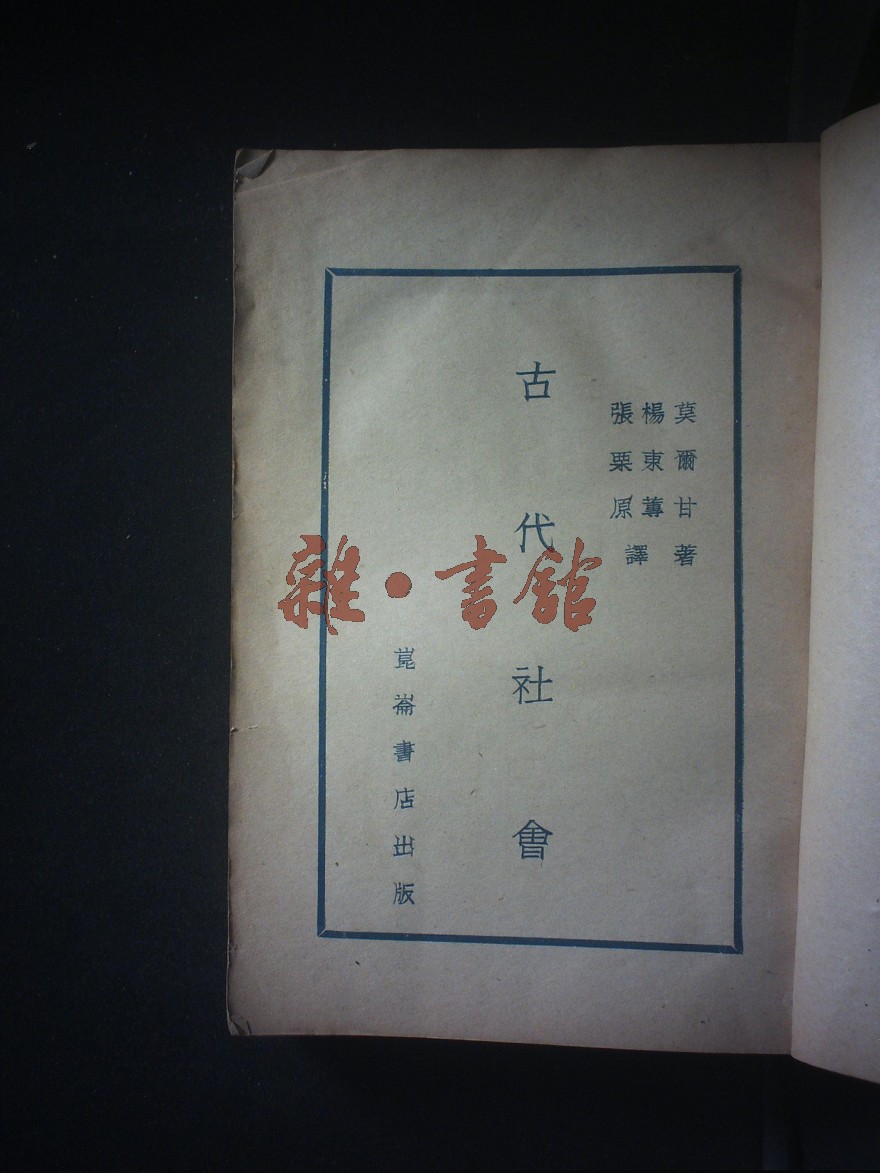 莫爾甘著
楊東蓴
張栗原
譯
古代社會
崑崙書店出版
雜·書館